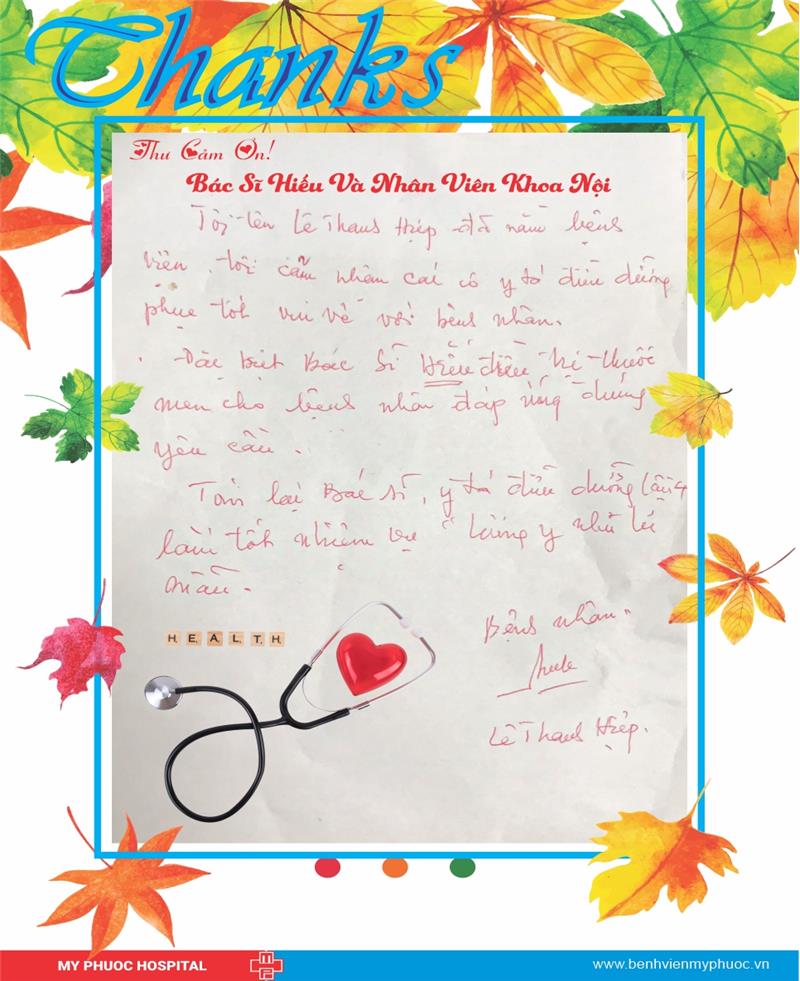 Thanks
Thư Cảm Ơn!
Bác Sĩ Hiếu Và Nhân Viên Khoa Nội
Tôi tên Lê Thanh Hiệp đã nằm bệnh
viện, tôi cảm nhận các cô y tá điều dưỡng
phục tốt vui vẻ với bệnh nhân.
Đặc biệt Bác Sĩ Hiếu điều trị thuốc
men cho bệnh nhân đáp ứng đúng
yêu cầu.
Tóm lại Bác sĩ, y tá điều dưỡng
làm tốt nhiệm vụ " lương y như từ
mẫu.
HEALTH
Bệnh nhân.
Lê Thanh Hiệp.
MY PHUOC HOSPITAL
www.benhvienmyphuoc.vn